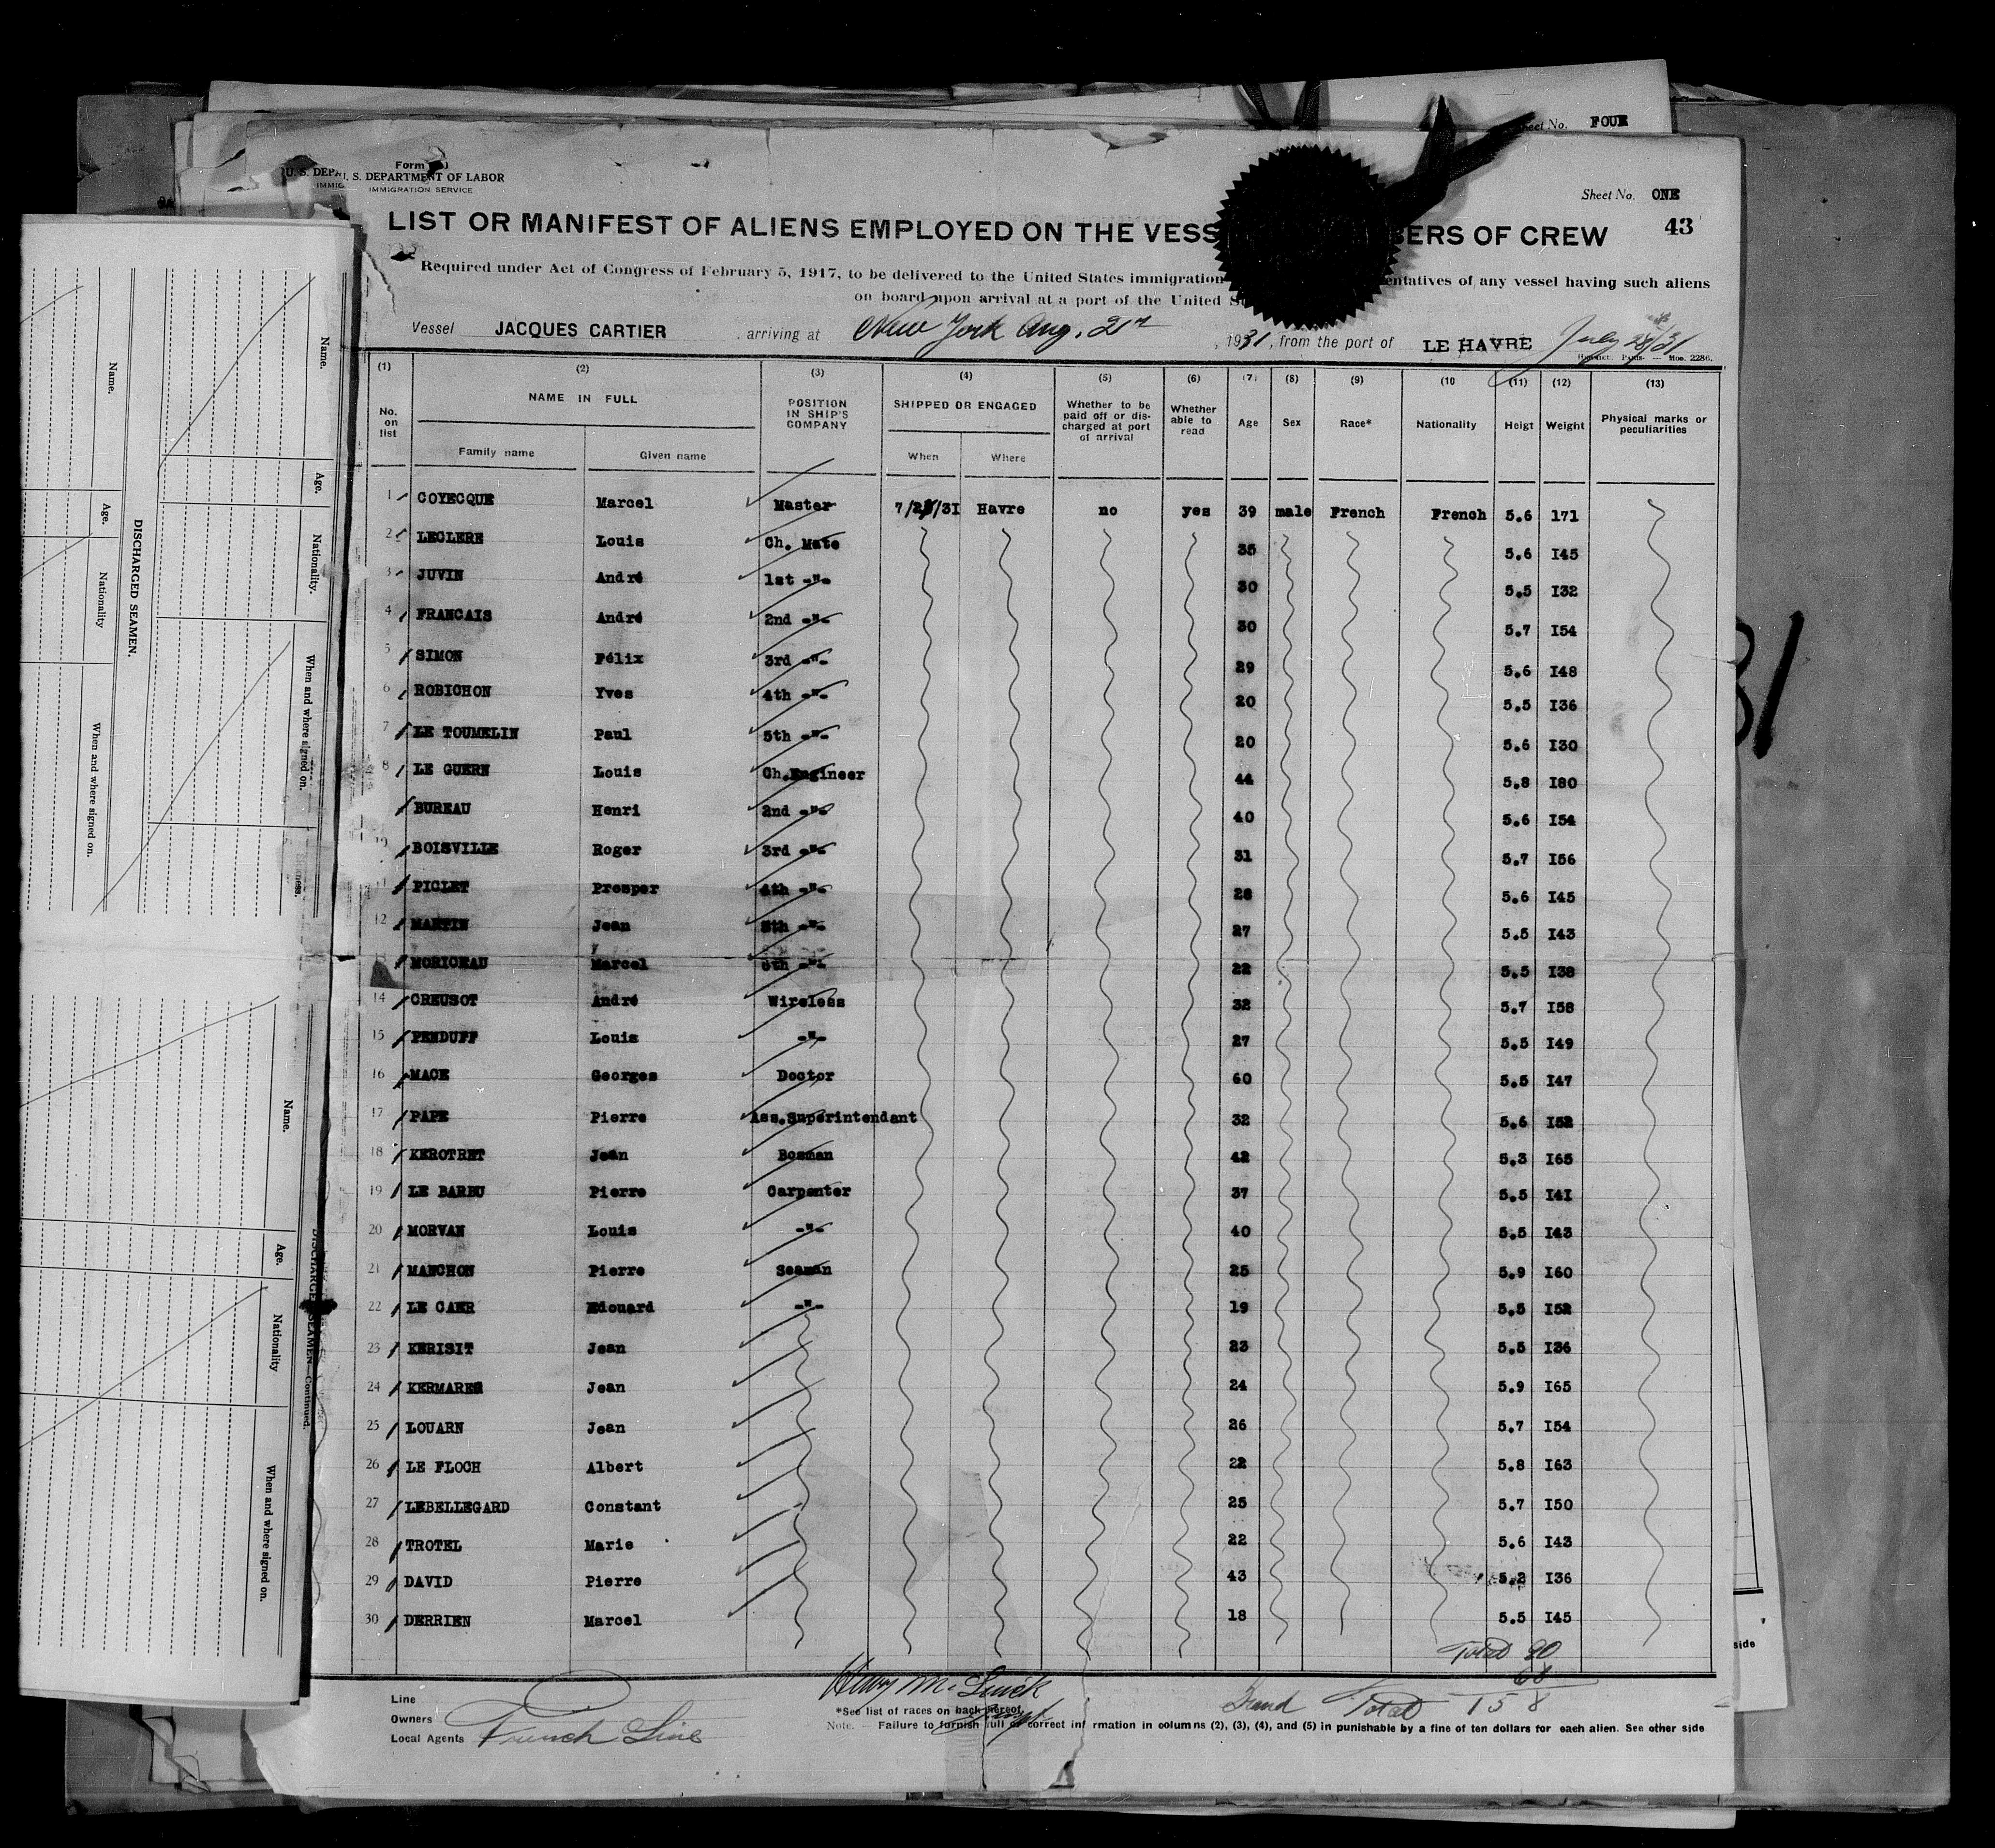 Sheet No. FOUR
Form
U. S. DEPARTMENT OF LABOR
IMMIGRATION SERVICE
Sheet No. ONE
43
LIST OR MANIFEST OF ALIENS EMPLOYED ON THE VESS BERS OF CREW
Required under Act of Congress of February 5, 1917, to be delivered to the United States immigration entatives of any vessel having such aliens
on board upon arrival at a port of the United
Vessel JACQUES CARTIER arriving at New York Aug. 21, 1931, from the port of LE HAVRE July 28/31
Moe. 2286.
(1) (2) (3) (4) (5) (6) (7) (8) (9) (10 (11) (12) (13)
No. on list NAME IN FULL POSITION IN SHIP'S COMPANY SHIPPED OR ENGAGED Whether to be paid off or dis-charged at port of arrival Whether able to read Age Sex Race* Nationality Heigt Weight Physical marks or peculiarities
Family name Given name When Where
1 COYECQUE Marcel Master 7/2 /31 Havre no yes 39 male French French 5.6 171
2 LECLERE Louis Ch. Mate 35 5.6 I45
3 JUVIN André 1st -"- 30 5.5 I32
4 FRANCAIS André 2nd -"- 30 5.7 I54
5 SIMON Félix 3rd -"- 29 5.6 I48
6 ROBICHON Yves 4th -"- 20 5.5 I36
7 LE TOUMELIN Paul 5th -"- 20 5.6 I30
8 LE GUERN Louis Ch.Engineer 44 5.8 I80
BUREAU Henri 2nd -"- 40 5.6 I54
BOISVILLE Roger 3rd -"- 31 5.7 I56
PICLET Prosper 4th -"- 28 5.6 I45
12 MARTIN Jean 5th -"- 27 5.5 I43
MORICEAU Marcel 6th -"- 22 5.5 I38
14 CREUSOT André Wireless 32 5.7 I58
15 PENDUFF Louis -"- 27 5.5 I49
16 MACE Georges Doctor 60 5.5 I47
17 PAPE Pierre Ass.Superintendant 32 5.6 I52
18 KEROTRET Jean Bosman 42 5.3 I65
19 LE BARBU Pierre Carpenter 37 5.5 I41
20 MORVAN Louis -"- 40 5.5 I43
21 MANCHON Pierre Seaman 25 5.9 I60
22 LE CAER Edouard -"- 19 5.5 I52
23 KERISIT Jean 23 5.5 I36
24 KERMAREN Jean 24 5.9 I65
25 LOUARN Jean 26 5.7 I54
26 LE FLOCH Albert 22 5.8 I63
27 LEBELLEGARD Constant 25 5.7 I50
28 TROTEL Marie 22 5.6 I43
29 DAVID Pierre 43 5.2 I36
30 DERRIEN Marcel 18 5.5 I45
Total 90
68
Grand Total 158
Line
Owners
Local Agents French Line
*See list of races on back hereof.
Note. — Failure to furnish full or correct inf rmation in columns (2), (3), (4), and (5) in punishable by a fine of ten dollars for each alien. See other side
side
Name.
Age.
Nationality.
When and where signed on.
DISCHARGED SEAMEN.
Name.
Age.
Nationality
When and where signed on.
DISCHARGED SEAMEN—Continued.
Name.
Age.
Nationality
When and where signed on.